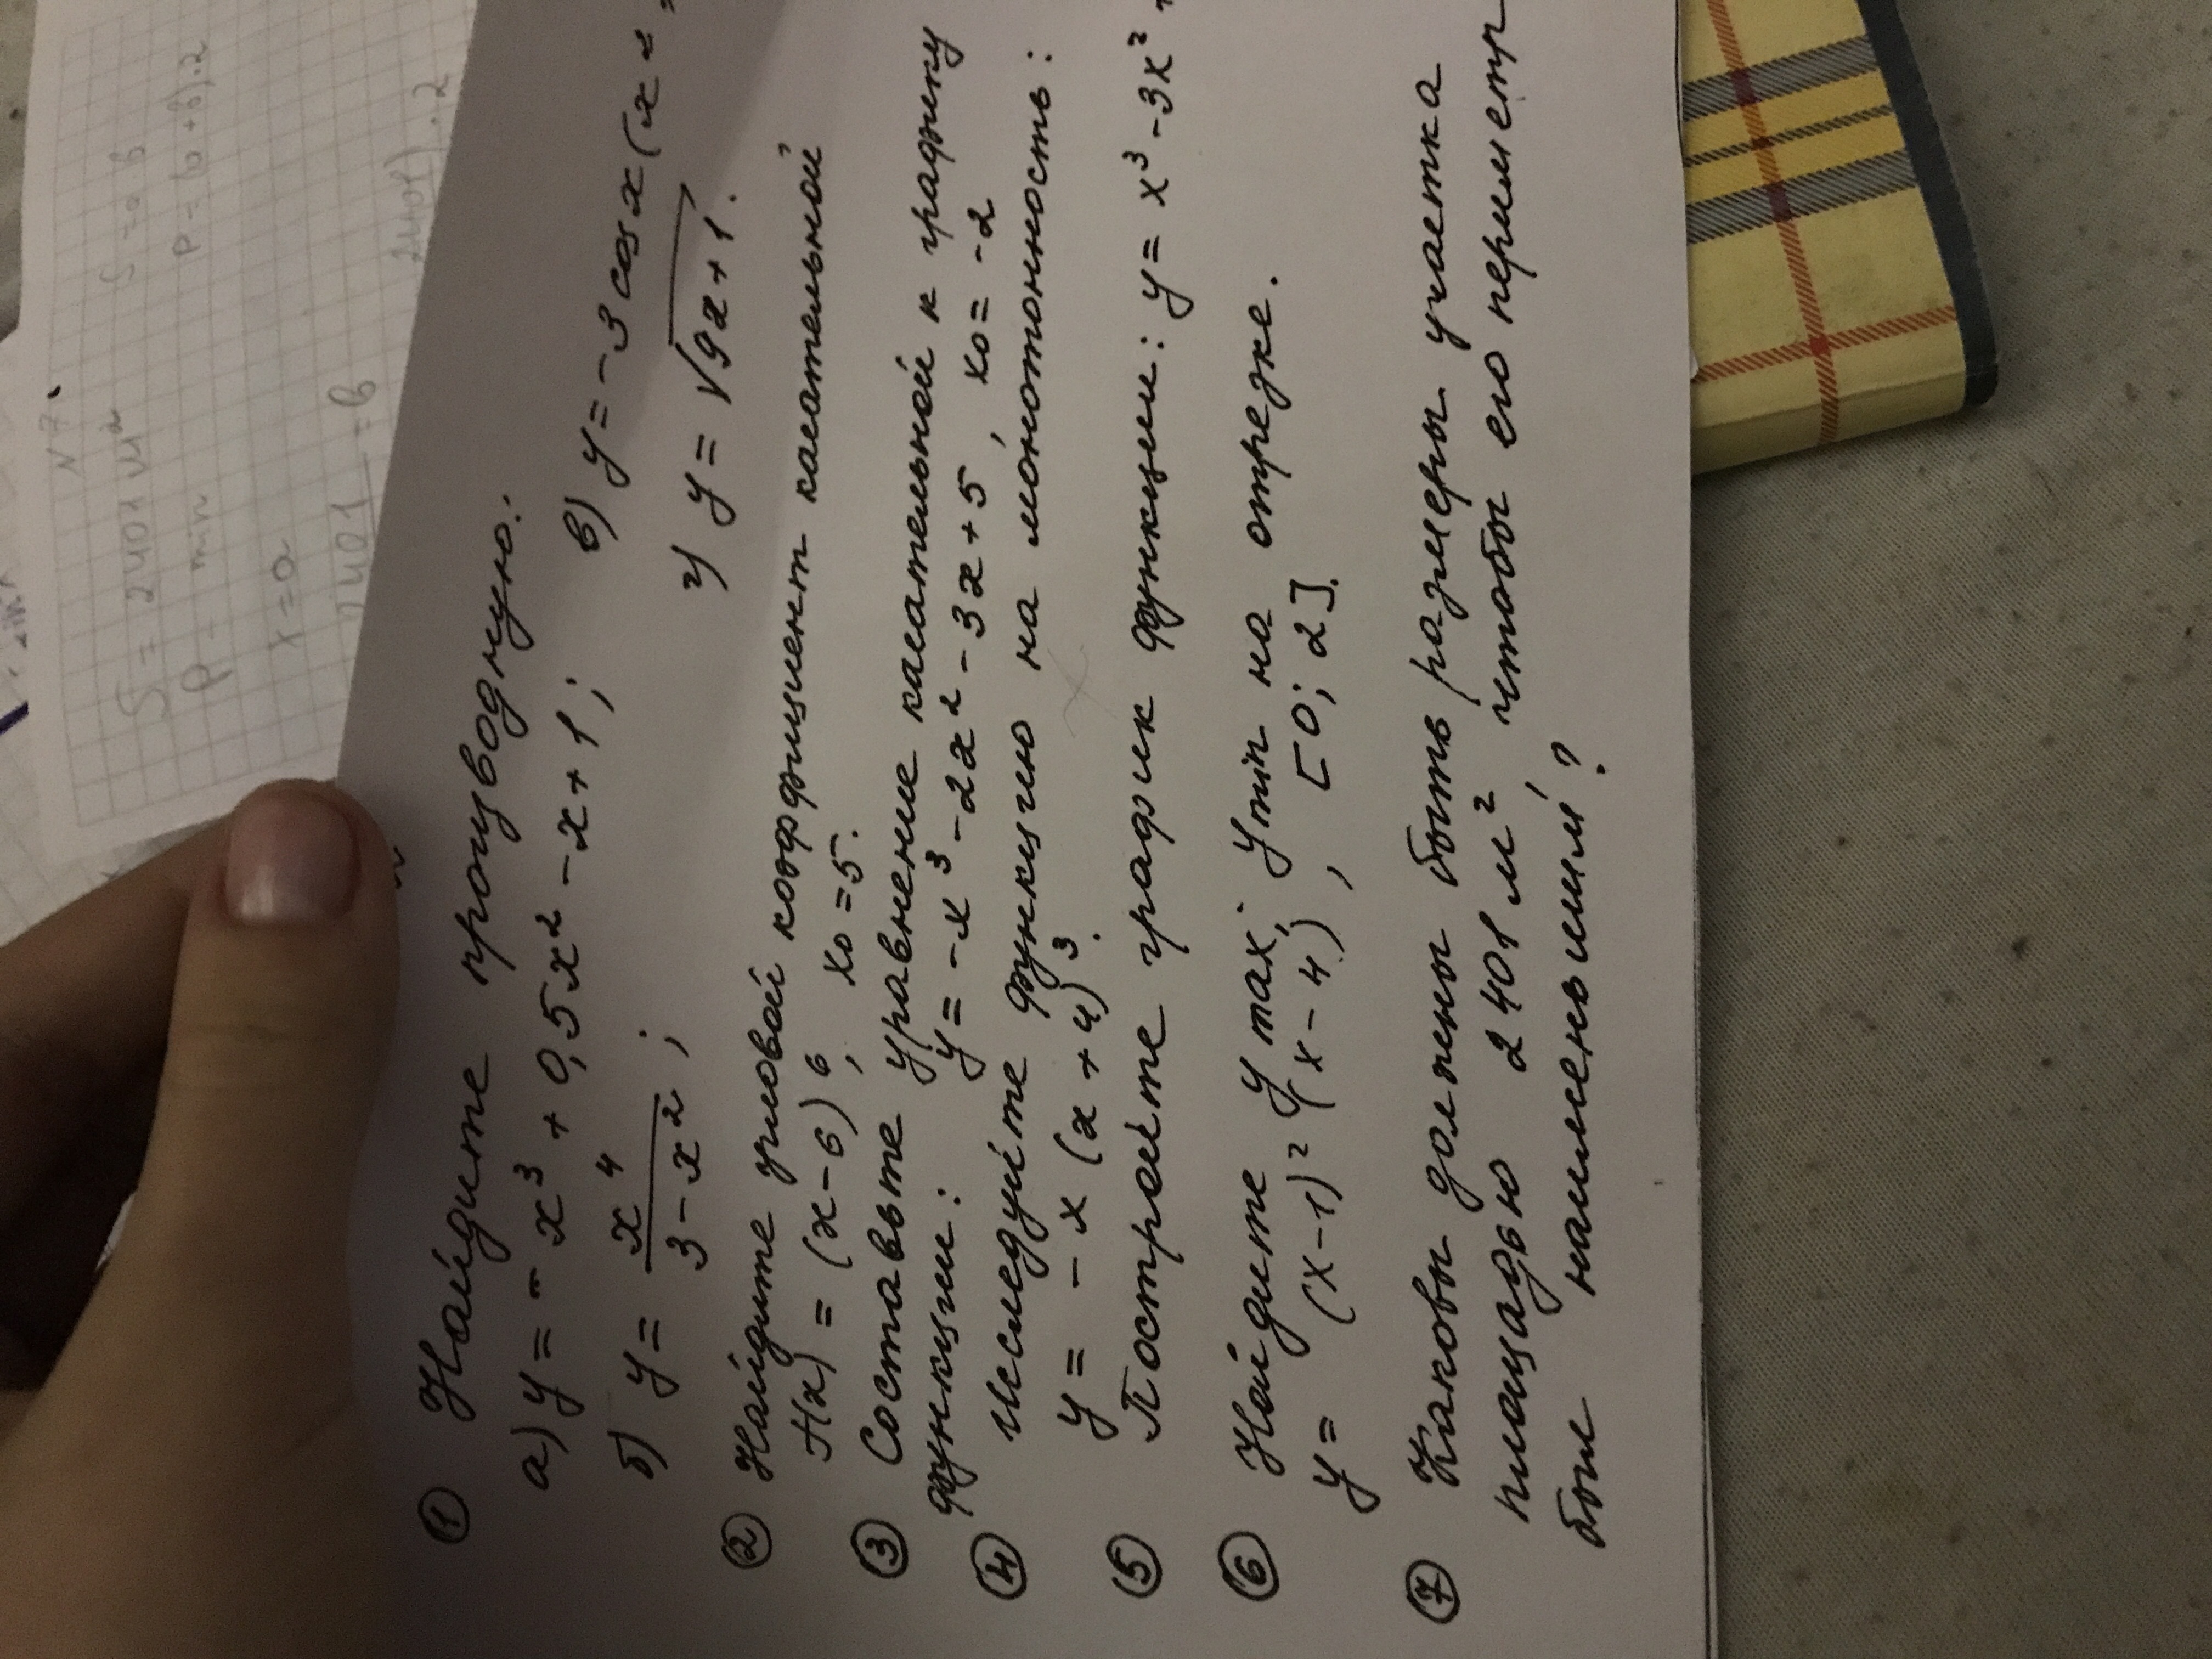 ① Найдите производную:
а) y = - x³ + 0,5x² - x + 1;
б) y = x⁴ / (3 - x²);
в) y = -3 cos x (x²
г) y = √(9x + 1).
② Найдите угловой коэффициент касательной
f(x) = (x - 6)⁶, x₀ = 5.
③ Составьте уравнение касательной к графику
функции: y = -x³ - 2x² - 3x + 5, x₀ = -2
④ Исследуйте функцию на монотонность:
y = - x (x + 4)³.
⑤ Постройте график функции: y = x³ - 3x²
⑥ Найдите y max; y min на отрезке.
y = (x - 1)² (x - 4), [0; 2].
⑦ Каковы должны быть размеры участка
площадью 2401 м², чтобы его периметр
был наименьшим?
N 7.
S = 2401 м² S = a b
P = min P = (a + b).2
x = a
2401 = b
2401).2